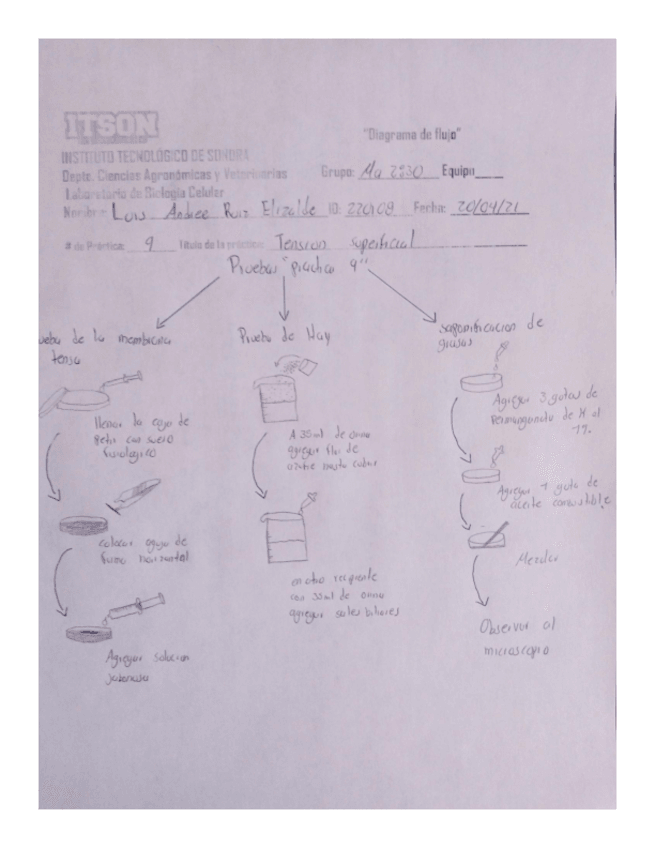 ITSON
"Diagrama de flujo"
INSTITUTO TECNOLÓGICO DE SONORA
Depto. Ciencias Agronómicas y Veterinarias
Grupo: Ma 2830 Equipo
Laboratorio de Biología Celular
Nombre: Luis Andree Ruiz Elizalde ID: Fecha: 20/04/21
# de Práctica: 9 Título de la práctica: Tension superficial
Pruebas "practica 9"
ueba de la membrana
tensa
Prueba de Hay
saponificacion de
grasas
llenar la caja de
petri con suero
fisiologico
colocar aguja de
forma horizontal
Agregar solucion
jabonosa
A 35ml de orina
agregar flor de
azufre hasta cubrir
en otro recipiente
con 35ml de orina
agregar sales biliares
Agregar 3 gotas de
Permanganato de K al
1%
Agregar 1 gota de
aceite comestible
Mezclar
Observar al
microscopio